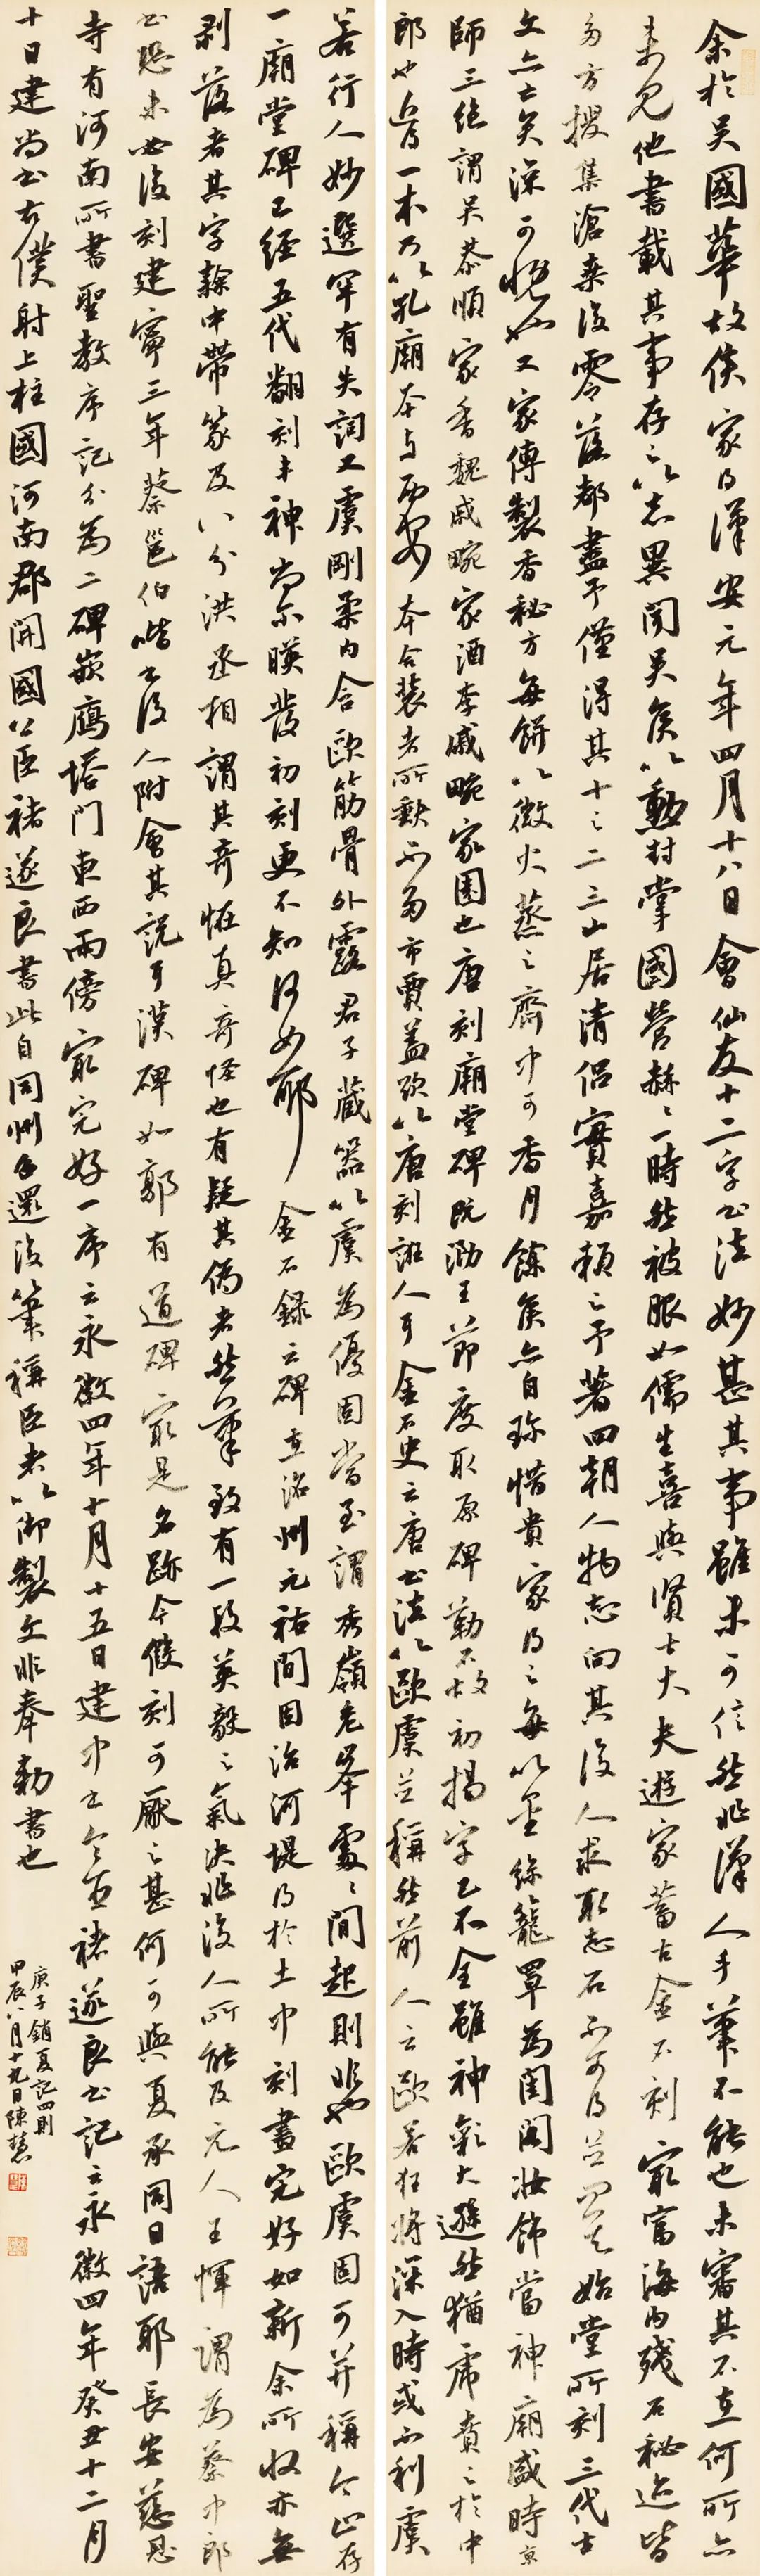 余於吳國華故侯家得漢安元年四月十八日會仙友十二字書法妙甚其事雖未可信然非漢人手筆不能也未審其石在何所亦
未見他書載其事存之以志異聞吳侯以勳封掌國營赫赫一時然被服如儒生喜與賢士大夫遊家蓄古金石刻最富海內殘石秘迹皆
多方搜集滄桑後零落都盡予僅得其十之二三山居清侶實嘉賴之予著四朝人物志向其後人求取志石不可得並天始堂所刻三代古
文亦亡矣深可慨也又家傳製香秘方每餅以微火蒸之齋中可香月餘侯亦自珍惜貴家得之每以金絲籠罩為閨閣妝飾當神廟盛時京
師三絕謂吳恭順家香魏戚畹家酒李戚畹家園也唐刻廟堂碑既泐王節度取原碑勒石故初搨字已不全雖神氣大遜然猶虎賁之於中
郎也近有一本乃以孔廟本與西安本合裝者所缺不多市賈蓋欲以唐刻誑人耳金石史云唐書法以歐虞並稱然前人云歐若狂將深入時或不利虞
若行人妙選罕有失詞又虞剛柔內含歐筋骨外露君子藏器以虞為優固當至謂秀嶺危峰處處間起則非也歐虞固可并稱今止存
一廟堂碑又經五代翻刻丰神尚爾暎發初刻更不知何如耶 金石錄云碑在洺州元祐間因治河堤得於土中刻畫完好如新余所收亦無
剝落者其字隸中帶篆及八分洪丞相謂其奇怪真奇怪也有疑其偽者然筆致有一段英毅之氣決非後人所能及元人王惲謂為蔡中郎
書恐未必後刻建寧三年蔡邕伯喈書後人附會其說耳漢碑如郭有道碑最是名跡今傻刻可厭之甚何可與夏承同日語耶長安慈恩
寺有河南所書聖教序記分為二碑嵌鴈塔門東西兩傍最完好一序云永徽四年十月十五日建中書令臣褚遂良書記云永徽四年癸丑十二月
十日建尚書右僕射上柱國河南郡開國公臣褚遂良書此自同州召還後筆稱臣者以御製文非奉勅書也
庚子銷夏記四則
甲辰八月十九日陳慧